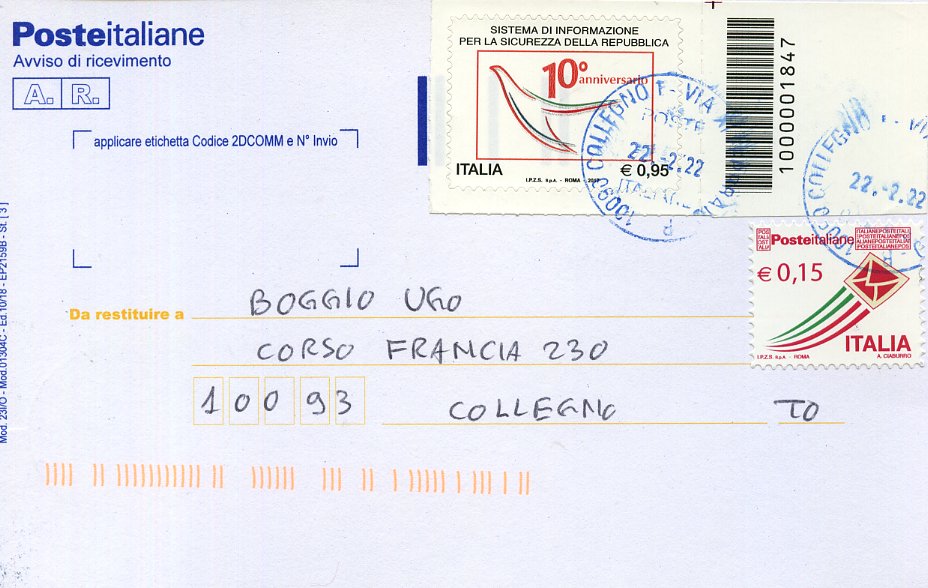 Posteitaliane
Avviso di ricevimento
A. R.
applicare etichetta Codice 2DCOMM e N° Invio
SISTEMA DI INFORMAZIONE
PER LA SICUREZZA DELLA REPUBBLICA
10° anniversario
ITALIA
€ 0,95
I.P.Z.S. S.p.A. - ROMA - 2017
1000001847
10093 COLLEGNO
VIA
POSTE
22.-2.22
ITALIANE
10093 COLLEGNO
VIA
22.-2.22
Posteitaliane
€ 0,15
ITALIA
I.P.Z.S. S.p.A. - ROMA
A. CIABURRO
Da restituire a
BOGGIO UGO
CORSO FRANCIA 230
10093 COLLEGNO TO
Mod. 23I/O - Mod.01304C - Ed.10/18 - EP2159B - St. [ 3 ]